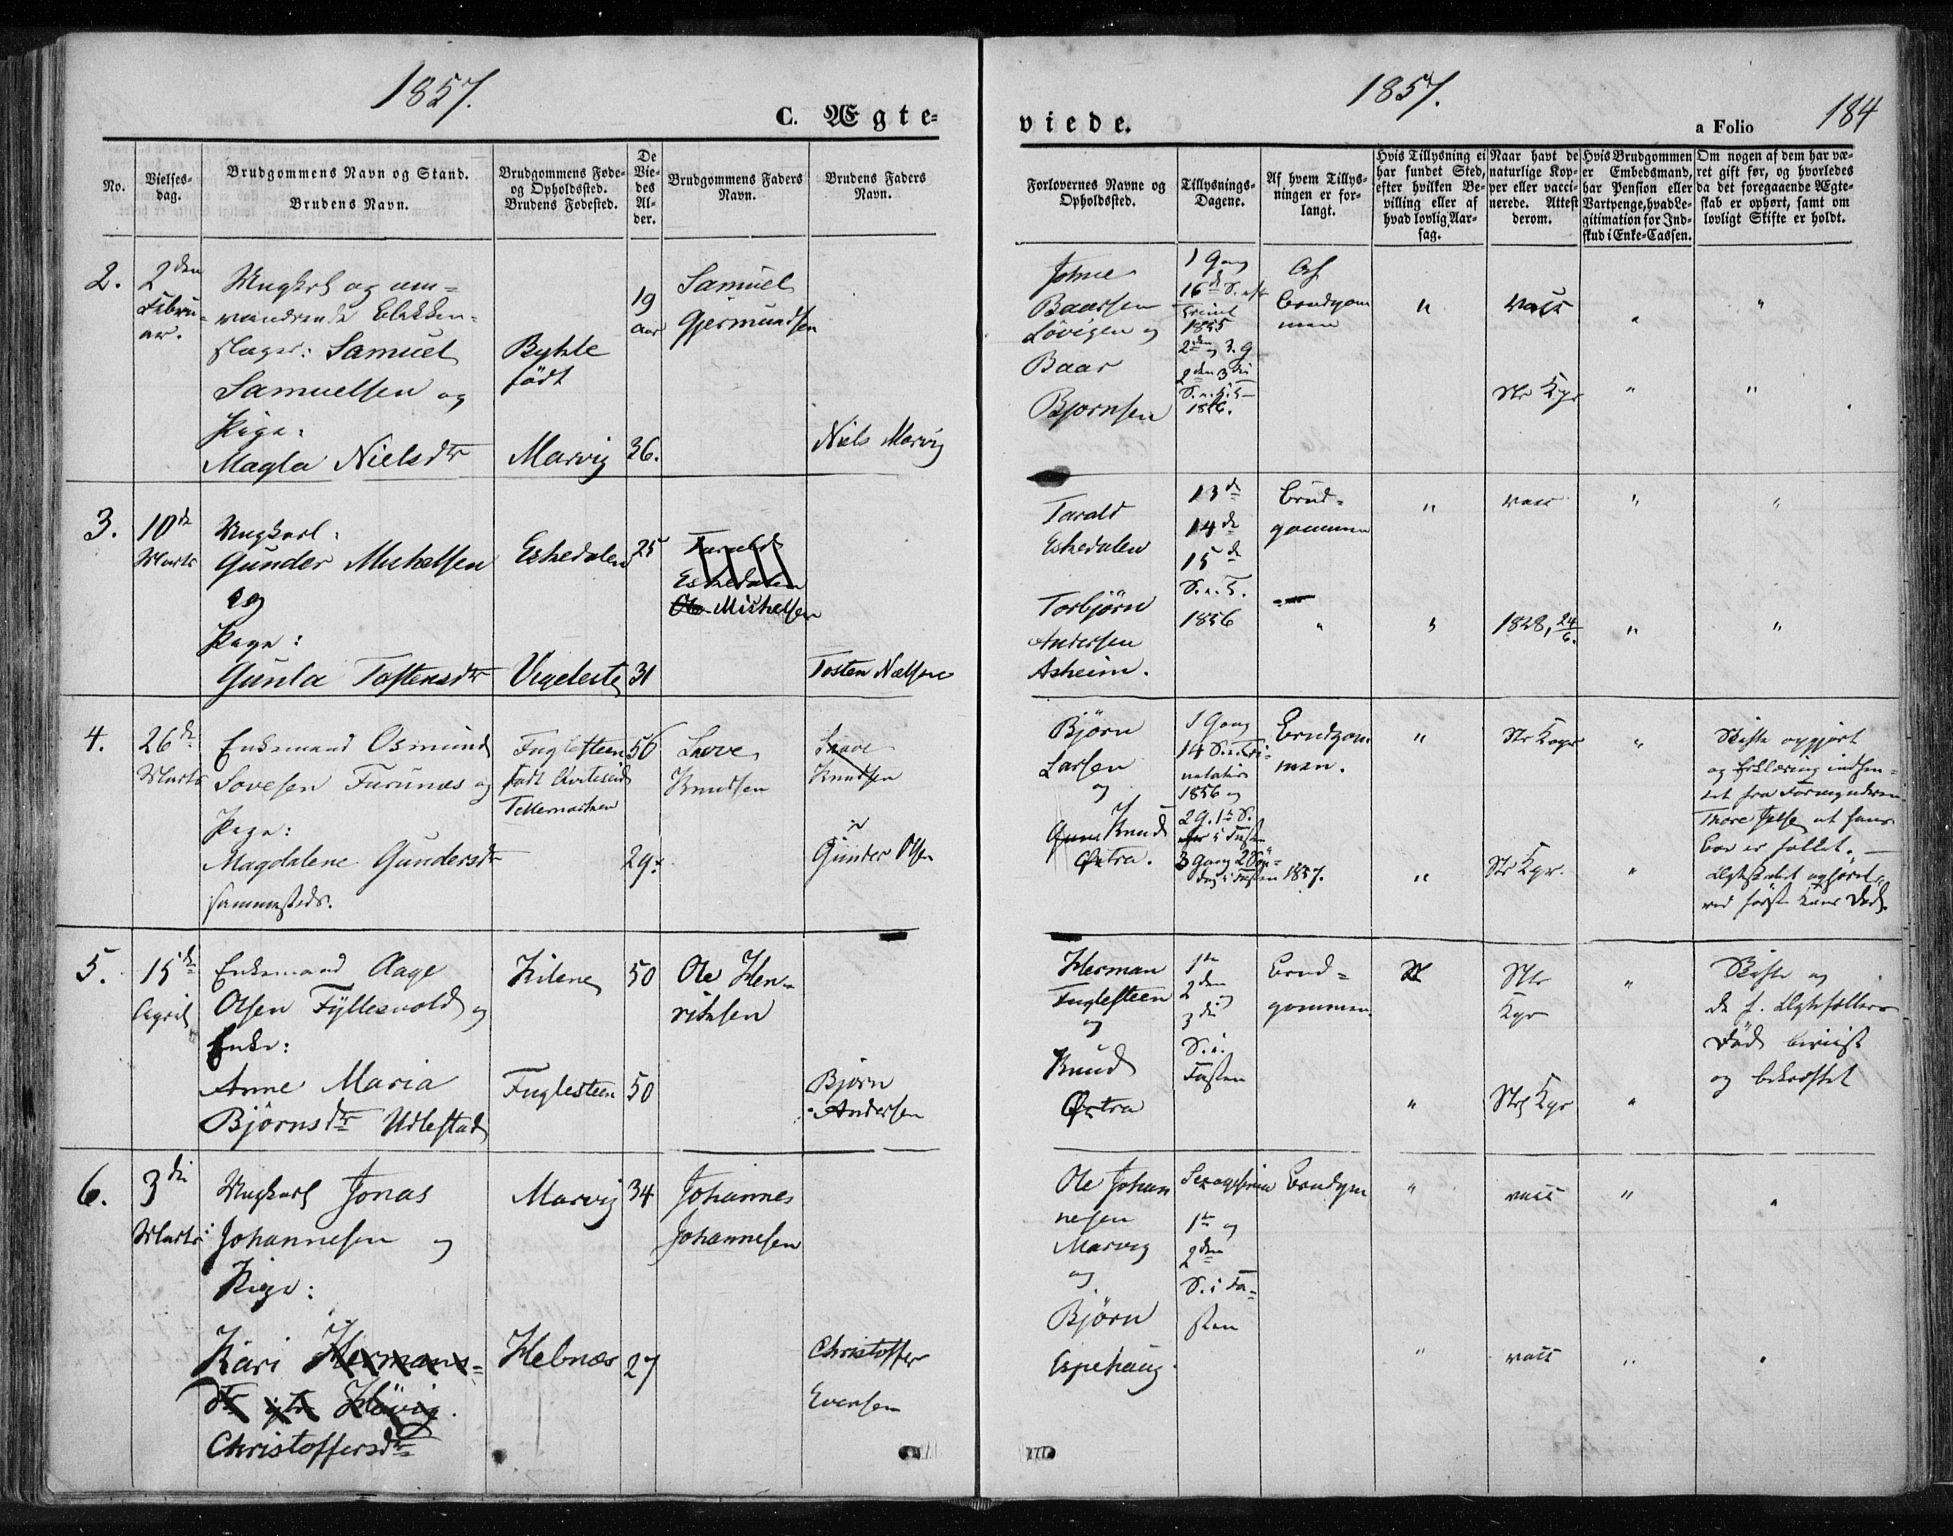 1857.
C. Ægte-
No.
Vielses-
dag.
Brudgommens Navn og Stand.
Brudens Navn.
Brudgommens Føde-
og Opholdssted.
Brudens Fødested.
De
Vie-
des
Al-
der.
Brudgommens Faders
Navn.
Brudens Faders
Navn.
2.
2den
Februar-
ar.
Ungkarl og om-
vandrende Blikken-
slager: Samuel
Samuelsen og
Pige:
Magla Nielsdtr
Bykle
født
Marvig
19
aar
36.
Samuel
Gjermundsen
Niels Marvig
3.
10de
Marts
Ungkarl:
Gunder Michelsen
og
Pege:
Gunla Tostensdtr
Eskedalen
Vigeleste
25
31
Tarald
Eskedalen
Ole Michelsen
Tosten Nielsen
4.
26de
Marts
Enkemand Osmund
Sovesen Furunæs og
Pege:
Magdalene Gundersdtr
sammesteds.
Fuglesteen
født
Tellemarken
56
29.
Sovve
Knudsen
Saave
Knudsen
Gunder Olsen
5.
15de
April
Enkemand Aage
Olsen Fyllesvold og
Enke:
Anne Maria
Björnsdtr Udlestad
Kilene
Fuglesteen
50
50
Ole Hen-
riksen
Björn
Andersen
6.
3die
Marts
Ungkarl Jonas
Johannesen og
Pige:
Kari Hermans-
dtr
Christoffersdtr
Marvig
Hebnæs
34
27
Johannes
Johannesen
Christoffer
Evensen
1857.
184
viede.
a Folio
Forlovernes Navne og
Opholdssted.
Tillysnings-
Dagene.
Af hvem Tillys-
ningen er for-
langt.
Hvis Tillysning ei
har fundet Sted,
efter hvilken Be-
villing eller af
hvad lovlig Aar-
sag.
Naar havt de
naturlige Kop-
per eller vacci-
nerede. Attest
derom.
Hvis Brudgommen
er Embedsmand,
har Pension eller
Vartpenge, hvad Le-
gitimation for Ind-
skud i Enke-Cassen.
Om nogen af dem har væ-
ret gift før, og hvorledes
da det foregaaende Ægte-
skab er ophørt, samt om
lovligt Skifte er holdt.
Johne
Baarsen
Løvigen og
Baar
Bjørnsen
1 Gang
16de S. eft
Trinit
1855
2den og 3. G
2den 3die
1856.
Af
Brudgom
men
"
vacc
"
"
Ntr Kpr
"
"
Tarald
Eskedalen
Torbjørn
Andersen
Asheim.
13de
14de
15de
S. e. T.
1856
Brud-
gommen
"
"
vacc
"
"
"
1828, 24/6.
"
"
Björn
Larsen
og
Knud
Øxtra.
1 Gang
14 S. e. Tri-
nitatis
1856 og
2 g. 1ste S.
i Fasten
3 Gang 2 Søn-
dag i Fasten 1857.
Brudgom
men.
"
Ntr Kopr
"
"
Ntr Kpr.
"
Skifte opgjort
og Erklæring indhen-
tet fra Formynderen
Thore
Boe er holdt.
Ægteskabet ophört
ved første Kones Död.
Herman
Fuglesteen
og
Knud
Øxtra
1ste
2den
og
3die
S. i.
Fasten
Brud-
gommen
"
Ntr
Kpr
"
"
Ntrl Kpr
"
Skifte og
de f. Ægtefællers
Död bevist
og bekræftet
Ole Johan
nesen
Marvig
og
Björn
Espehaug.
Sexagesima
1ste og
2den
S. i Fa-
sten
Brudgom
"
vacc
"
"
"
vacc
"
"